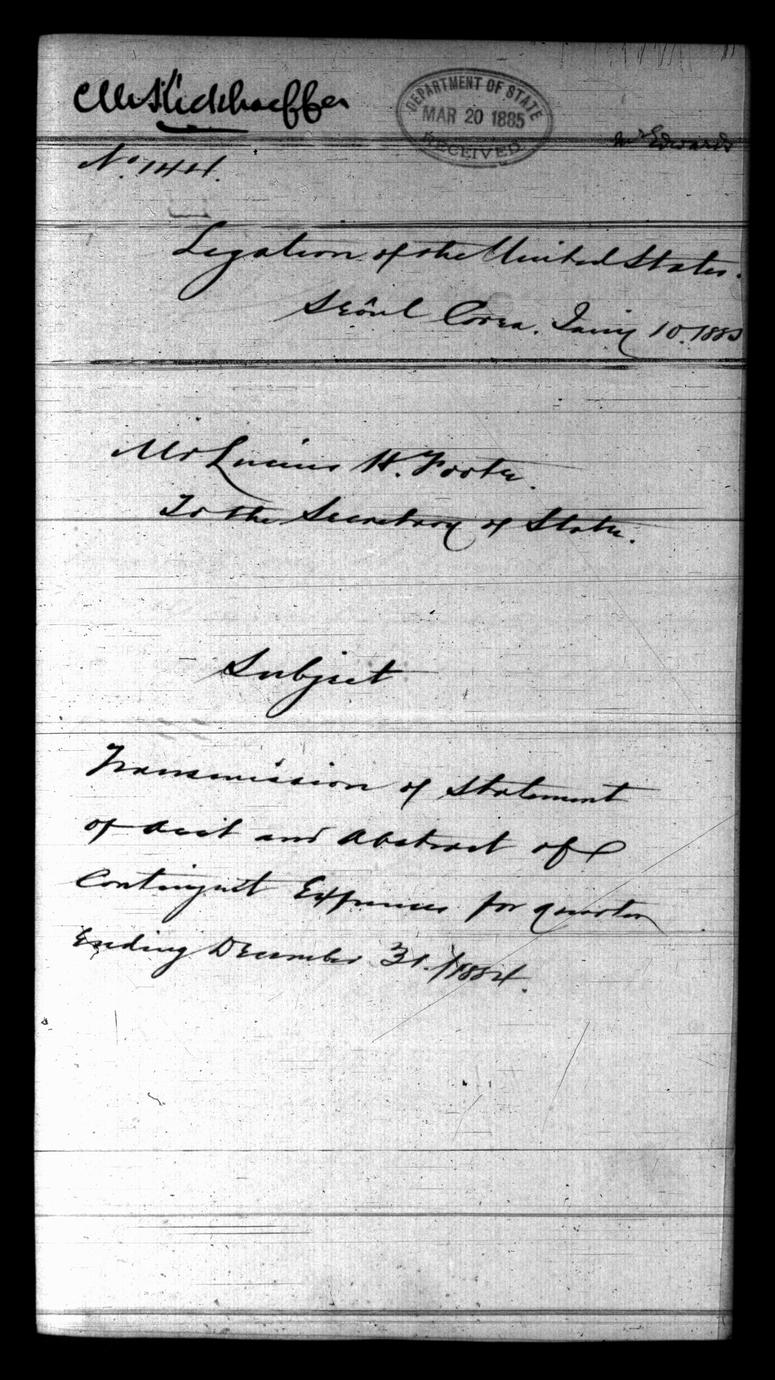 DEPARTMENT OF STATE
MAR 20 1885
RECEIVED
Mr Edwards
No. 144.
Legation of the United States.
Seoul Corea. Jany 10. 1885
Mr Lucius H. Foote.
To the Secretary of State.
Subject
Transmission of Statement
of acct and Abstract of
Contingent Expenses for quarter
Ending December 31. 1884.